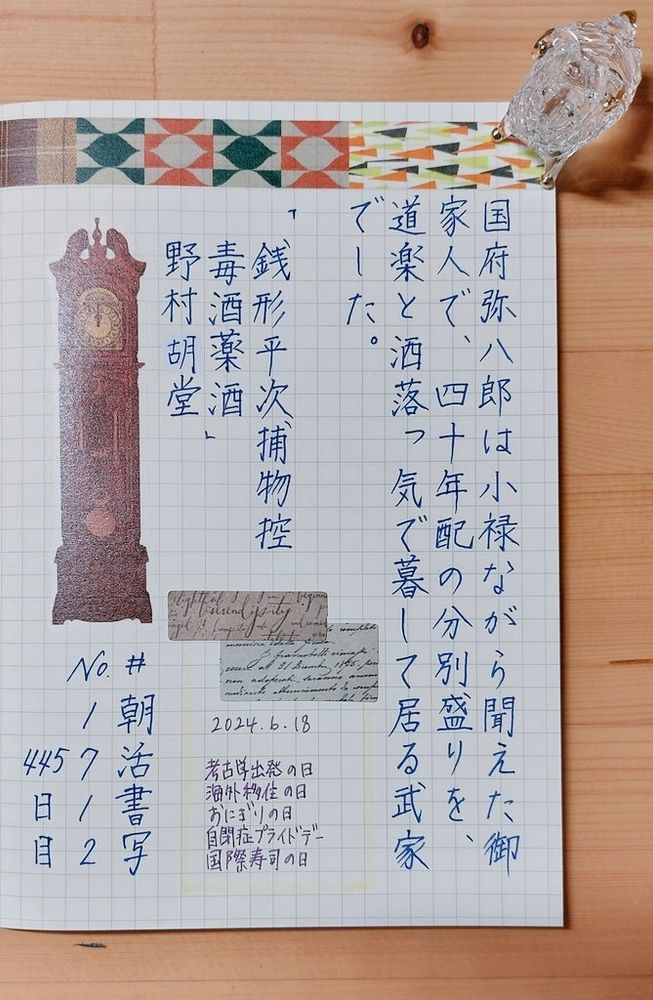 国府弥八郎は小禄ながら聞えた御
家人で、四十年配の分別盛りを、
道楽と洒落っ気で暮して居る武家
でした。
「銭形平次捕物控
毒酒薬酒」
野村胡堂
serendipity
2024.6.18
考古学出発の日
海外移住の日
おにぎりの日
自閉症プライドデー
国際寿司の日
#朝活書写
No.1712
445日目